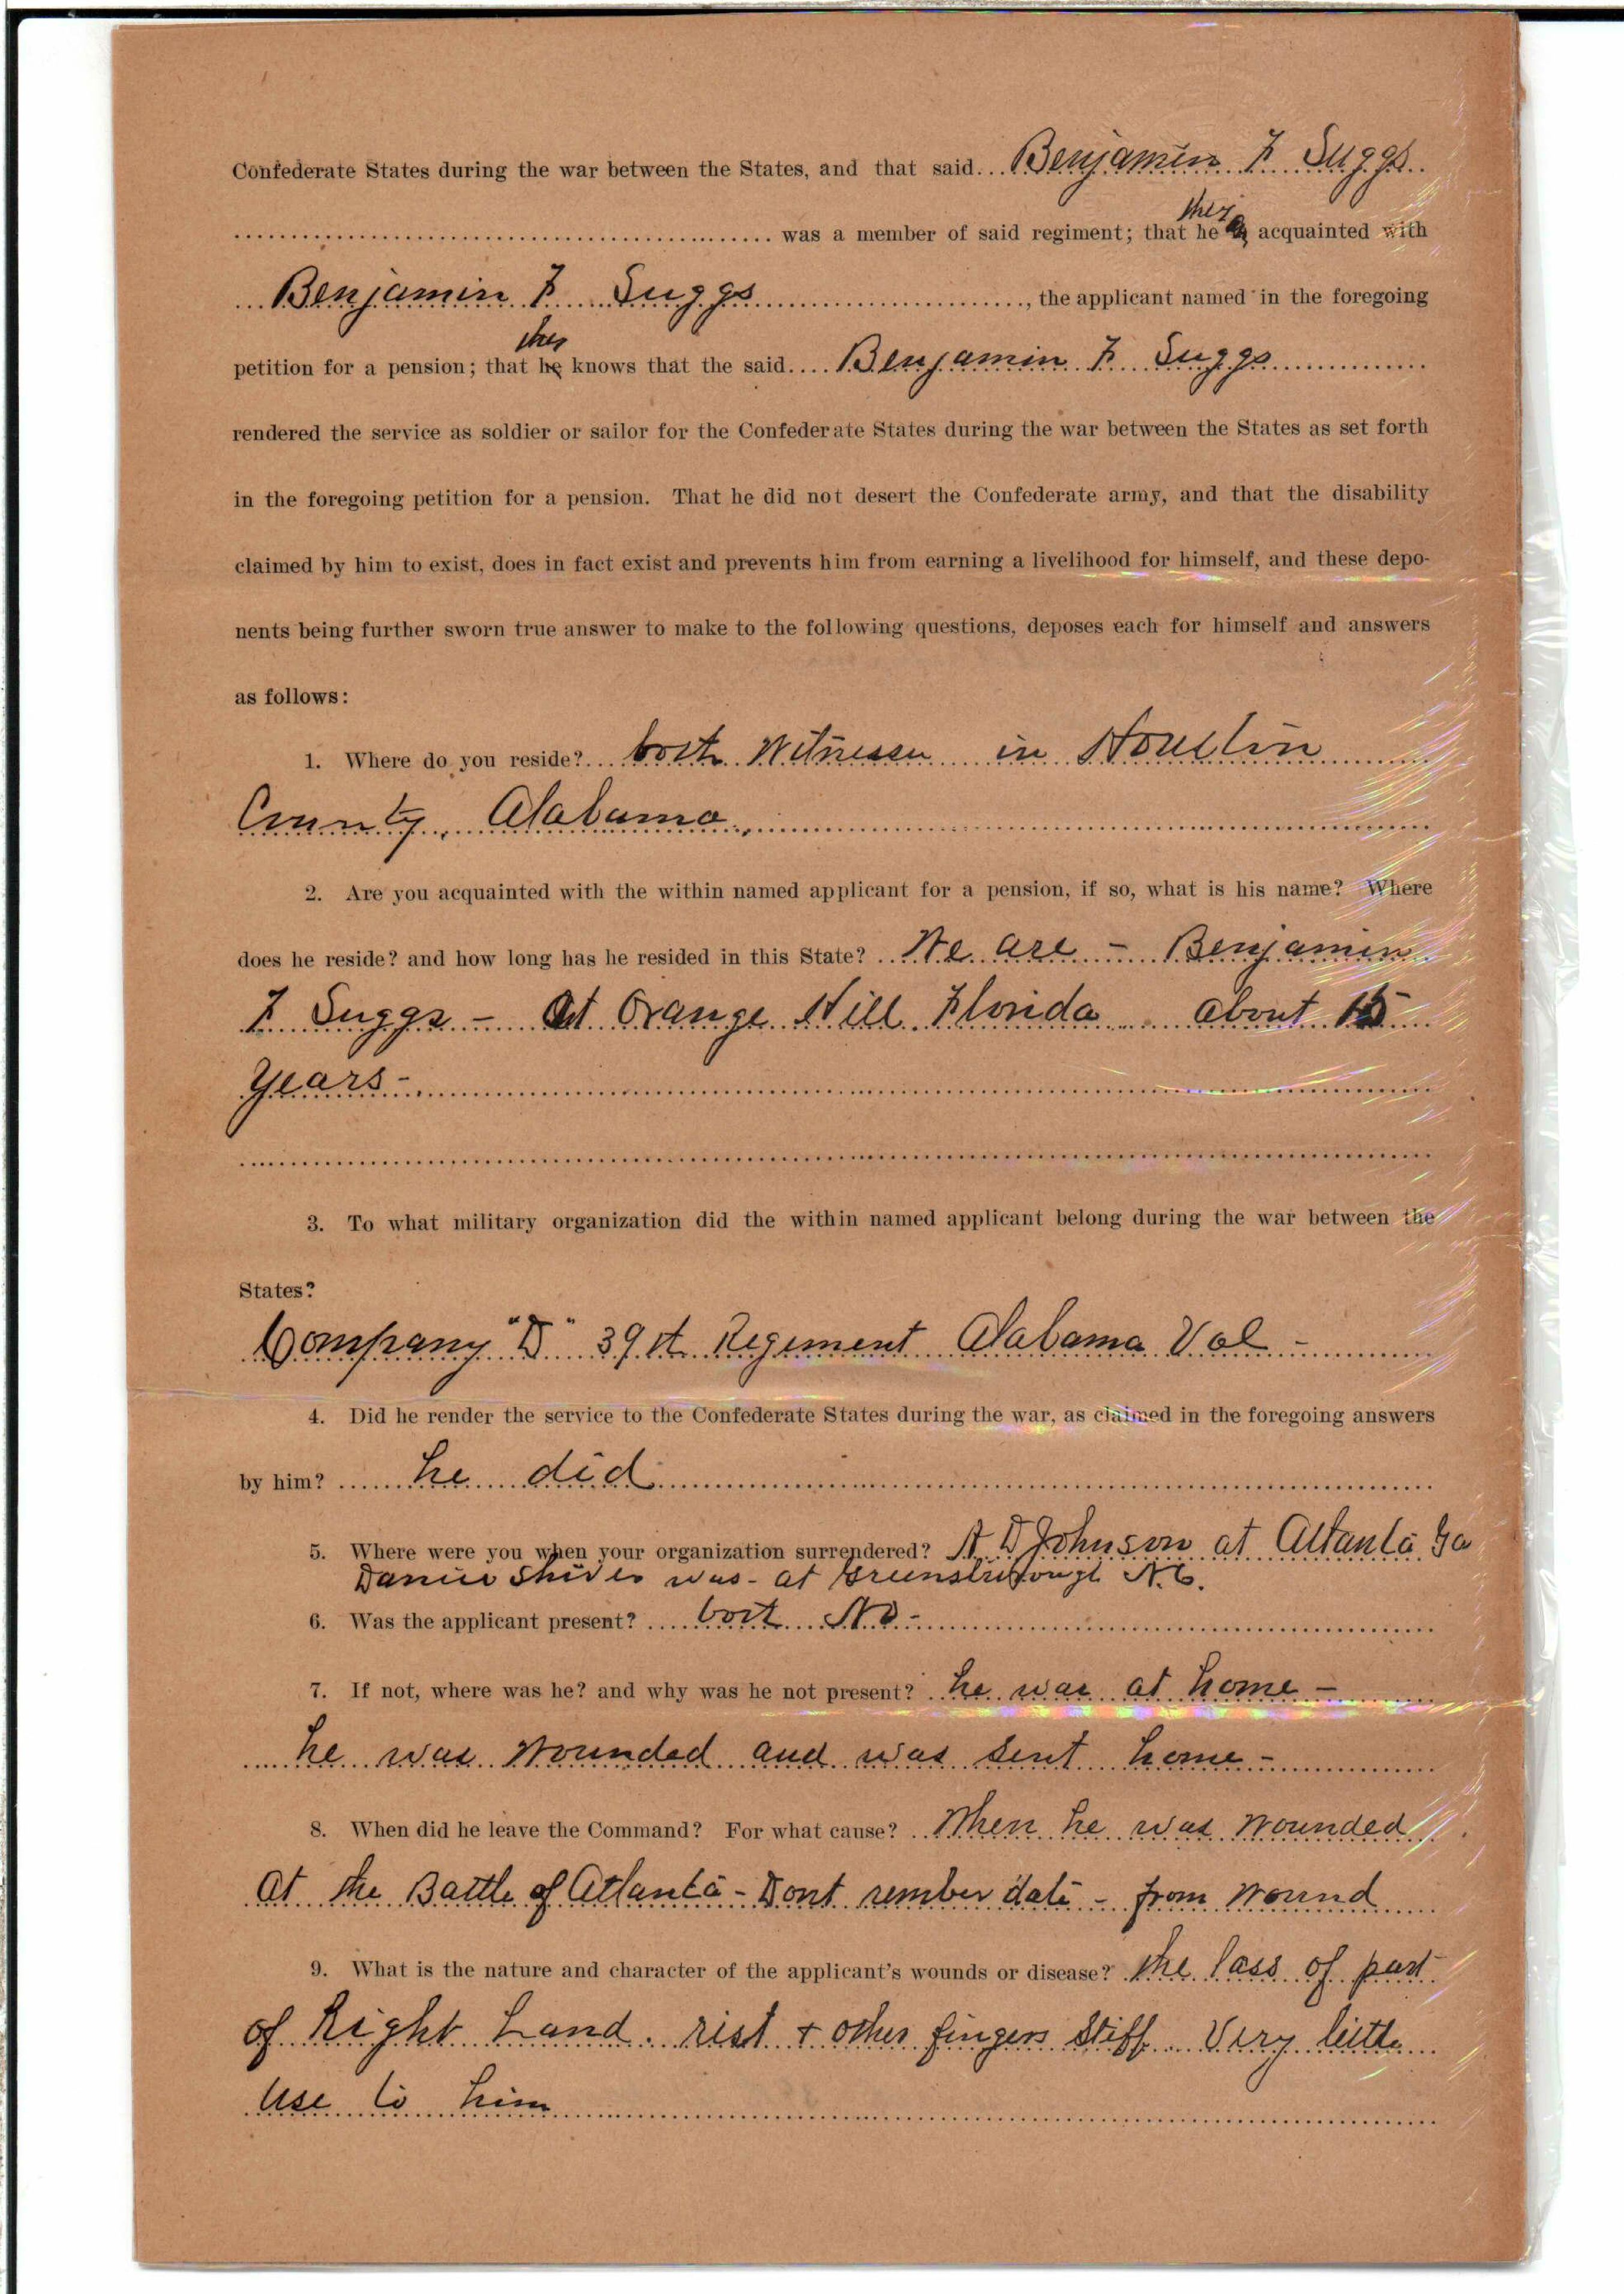 Confederate States during the war between the States, and that said Benjamin F Suggs
they
was a member of said regiment; that he acquainted with
Benjamin F Suggs, the applicant named in the foregoing
they
petition for a pension; that he knows that the said Benjamin F Suggs
rendered the service as soldier or sailor for the Confederate States during the war between the States as set forth
in the foregoing petition for a pension. That he did not desert the Confederate army, and that the disability
claimed by him to exist, does in fact exist and prevents him from earning a livelihood for himself, and these depo-
nents being further sworn true answer to make to the following questions, deposes each for himself and answers
as follows:
1. Where do you reside? both Witnesses in Houston
County, Alabama,
2. Are you acquainted with the within named applicant for a pension, if so, what is his name? Where
does he reside? and how long has he resided in this State? We are - Benjamin
F Suggs - At Orange Hill Florida about 15
Years -
3. To what military organization did the within named applicant belong during the war between the
States?
Company "D" 39st Regiment Alabama Vol -
4. Did he render the service to the Confederate States during the war, as claimed in the foregoing answers
by him? he did
5. Where were you when your organization surrendered? A D Johnson at Atlanta Ga
was - at N.C.
6. Was the applicant present? No -
7. If not, where was he? and why was he not present? he was at home -
he was wounded and was sent home -
8. When did he leave the Command? For what cause? When he was wounded
At the Battle of Atlanta - Dont rember date - from wound
9. What is the nature and character of the applicant's wounds or disease? the loss of part
of Right hand. rist + other fingers stiff. Very little
use to him